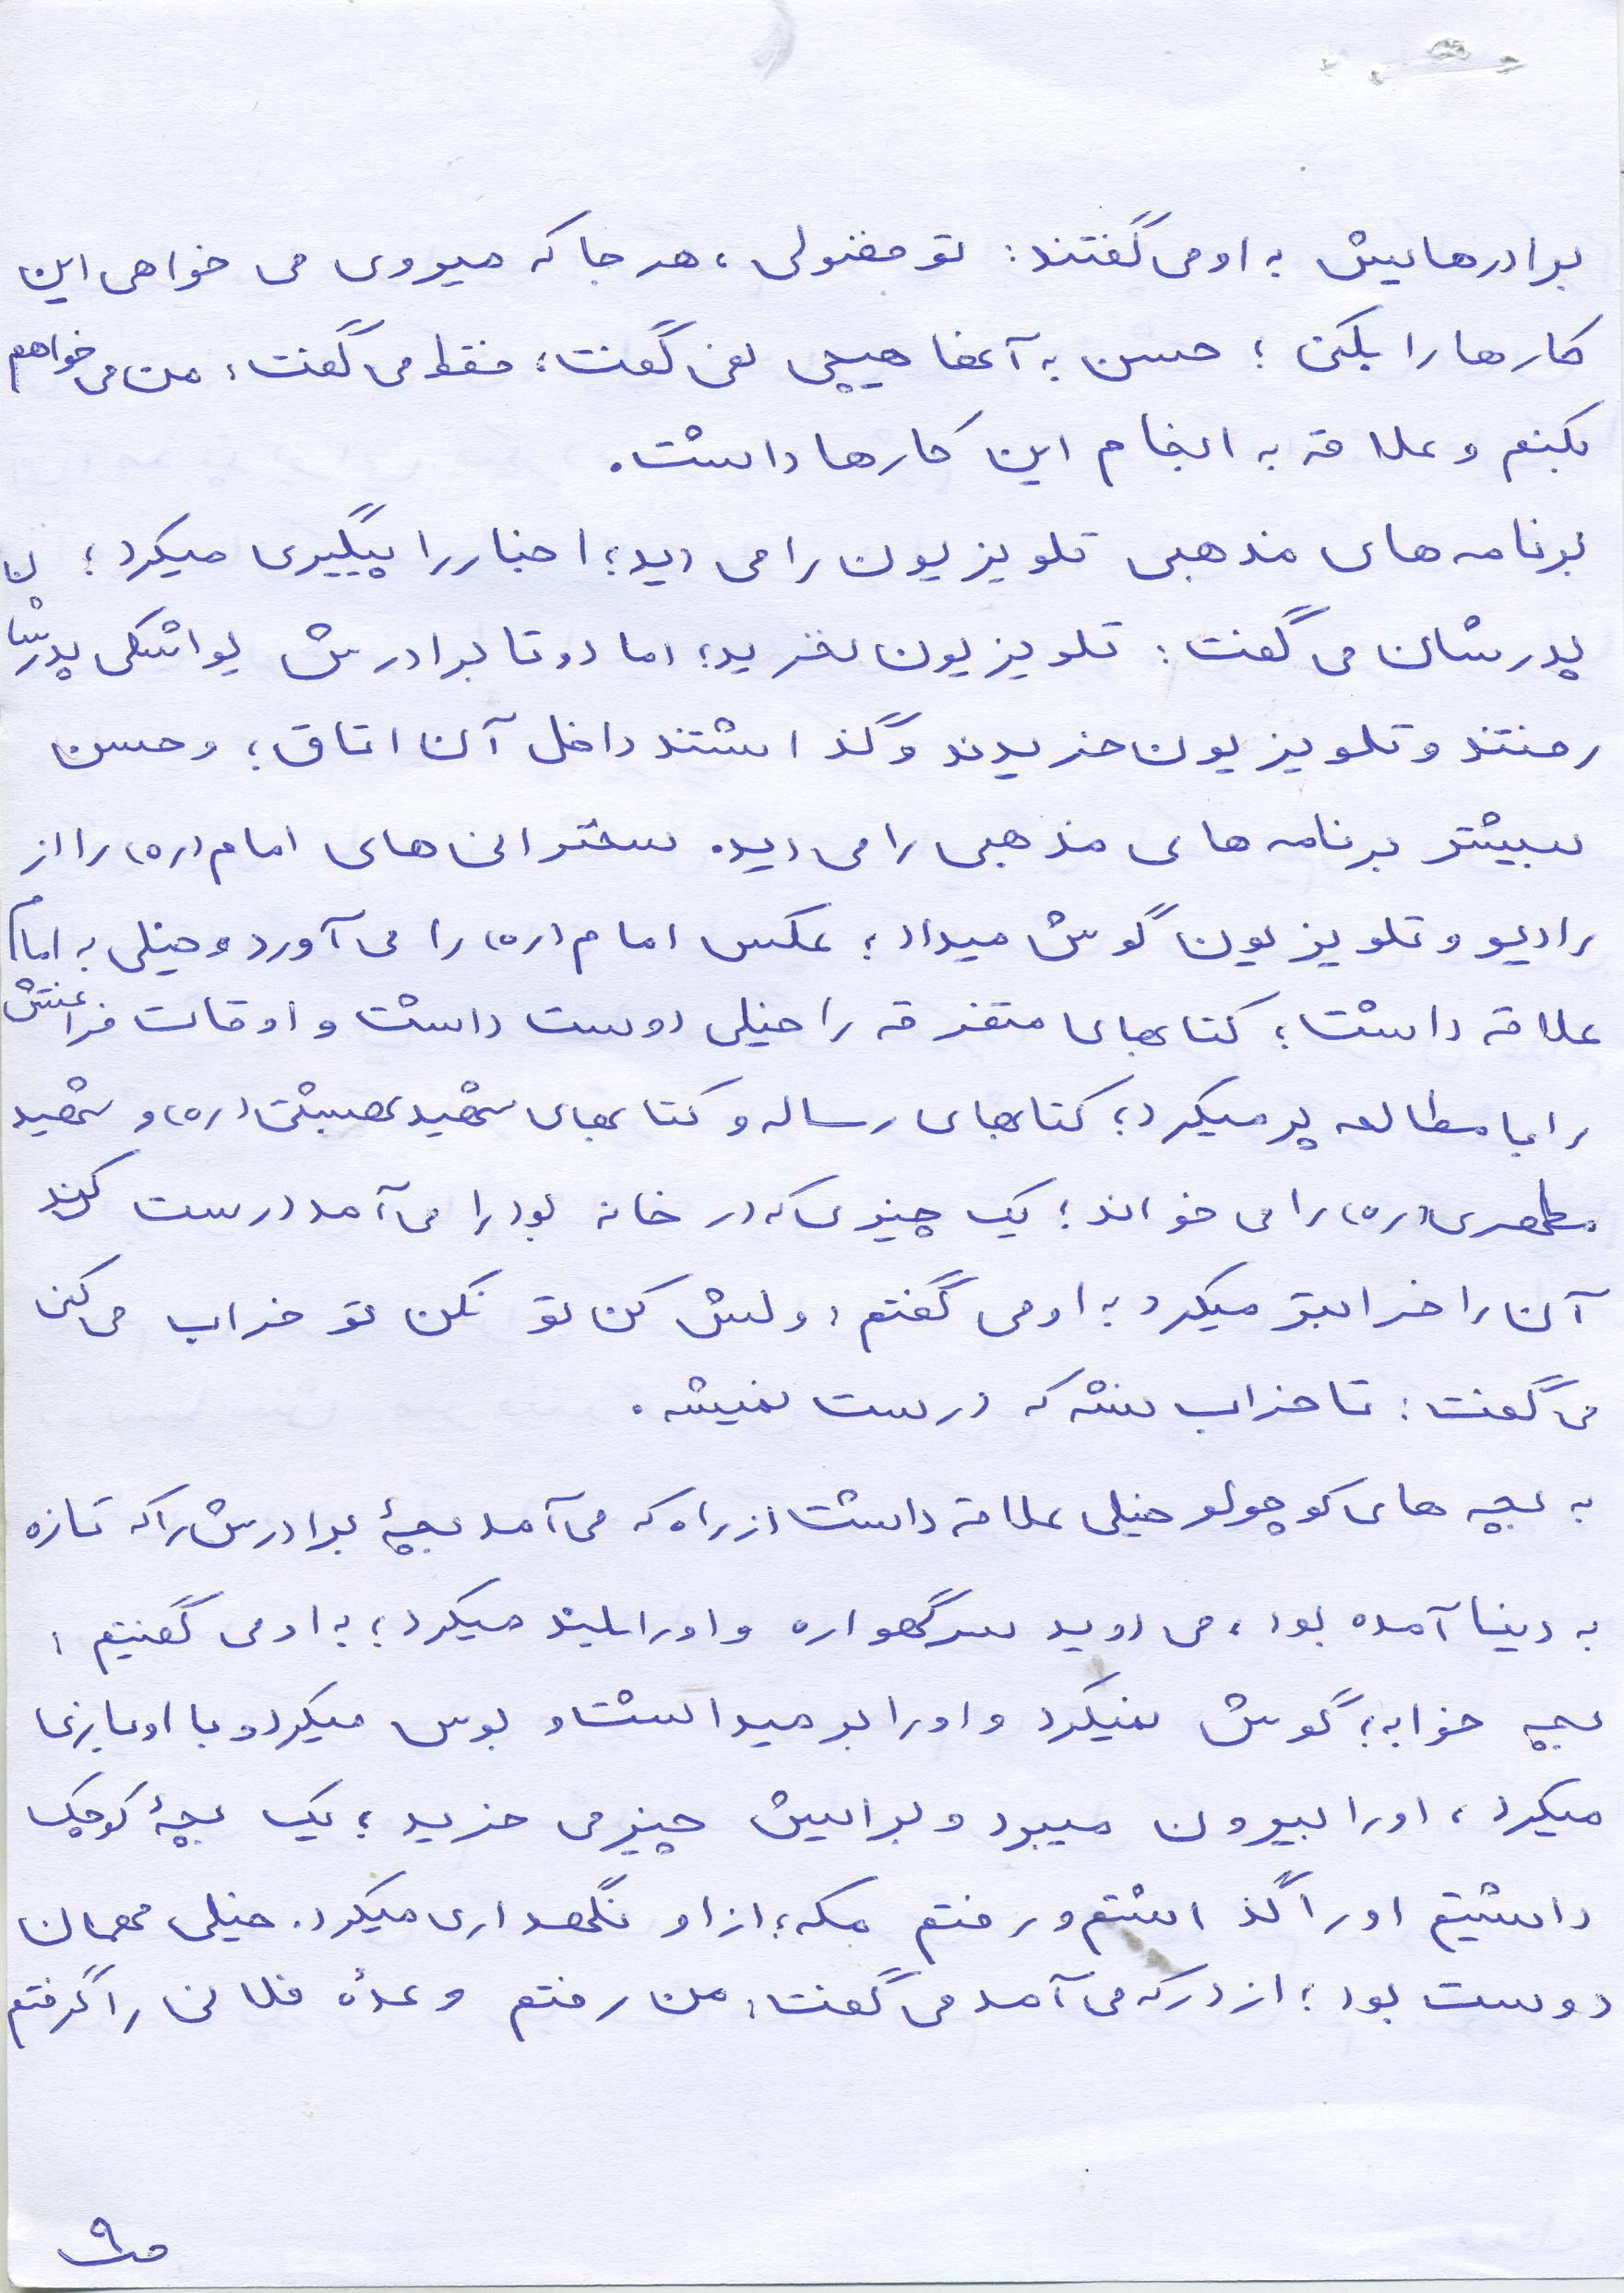 برادرهایش به او می گفتند: تو فضولی، هر جا که میروی می خواهی این
کارها را بکنی؛ حسن به آنها هیچی نمی گفت؛ فقط می گفت: من می خواهم
بکنم و علاقه به انجام این کارها داشت.
برنامه های مذهبی تلویزیون را می دید؛ اخبار را پیگیری میکرد؛
پدرشان می گفت: تلویزیون نخرید؛ اما دو تا برادرش یواشکی پدرشان
رفتند و تلویزیون خریدند و گذاشتند داخل آن اتاق؛ و حسن
بیشتر برنامه های مذهبی را می دید. سخنرانی های امام (ره) را از
رادیو و تلویزیون گوش میداد؛ عکس امام (ره) را می آورد و خیلی به امام
علاقه داشت؛ کتابهای متفرقه را خیلی دوست داشت و اوقات فراغتش
را با مطالعه پر میکرد؛ کتابهای رساله و کتابهای شهید بهشتی (ره) و شهید
مطهری (ره) را می خواند؛ یک چیزی که در خانه بود را می آمد درست کند
آن را خرابتر میکرد به او می گفتم: ولش کن تو نکن تو خراب می کنی
می گفت: تا خراب نشه که درست نمیشه.
به بچه های کوچولو خیلی علاقه داشت از راه که می آمد بچهٔ برادرش را که تازه
به دنیا آمده بود، می دوید سر گهواره و او را بلند میکرد؛ به او می گفتیم:
بچه خوابه؛ گوش نمیکرد و او را بر میداشت و بوس میکرد و با او بازی
میکرد، او را بیرون میبرد و برایش چیز می خرید؛ یک بچهٔ کوچک
داشتیم او را گذاشتم و رفتم مکه؛ از او نگهداری میکرد. خیلی مهمان
دوست بود؛ از در که می آمد می گفت: من رفتم وعدهٔ فلانی را گرفتم
ص۹